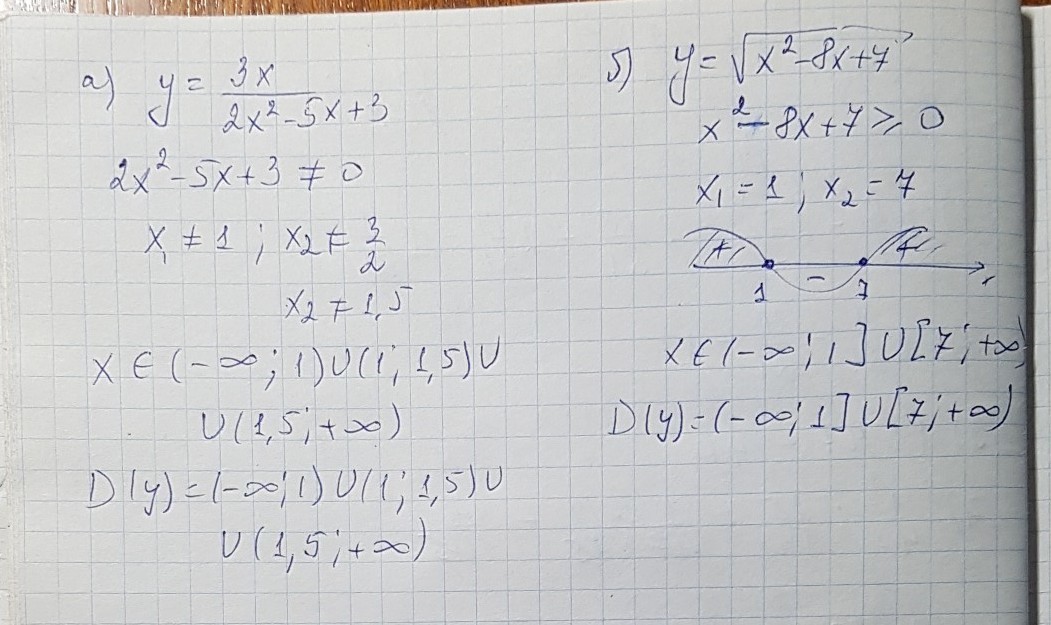 а) y = 3x / 2x² - 5x + 3
2x² - 5x + 3 ≠ 0
x₁ ≠ 1 ; x₂ ≠ 3/2
x₂ ≠ 1,5
x ∈ (-∞; 1) ∪ (1; 1,5) ∪
∪ (1,5; +∞)
D(y) = (-∞; 1) ∪ (1; 1,5) ∪
∪ (1,5; +∞)
б) y = √x² - 8x + 7
x² - 8x + 7 ⩾ 0
x₁ = 1 ; x₂ = 7
+ - +
1 7 x
x ∈ (-∞; 1] ∪ [7; +∞)
D(y) = (-∞; 1] ∪ [7; +∞)